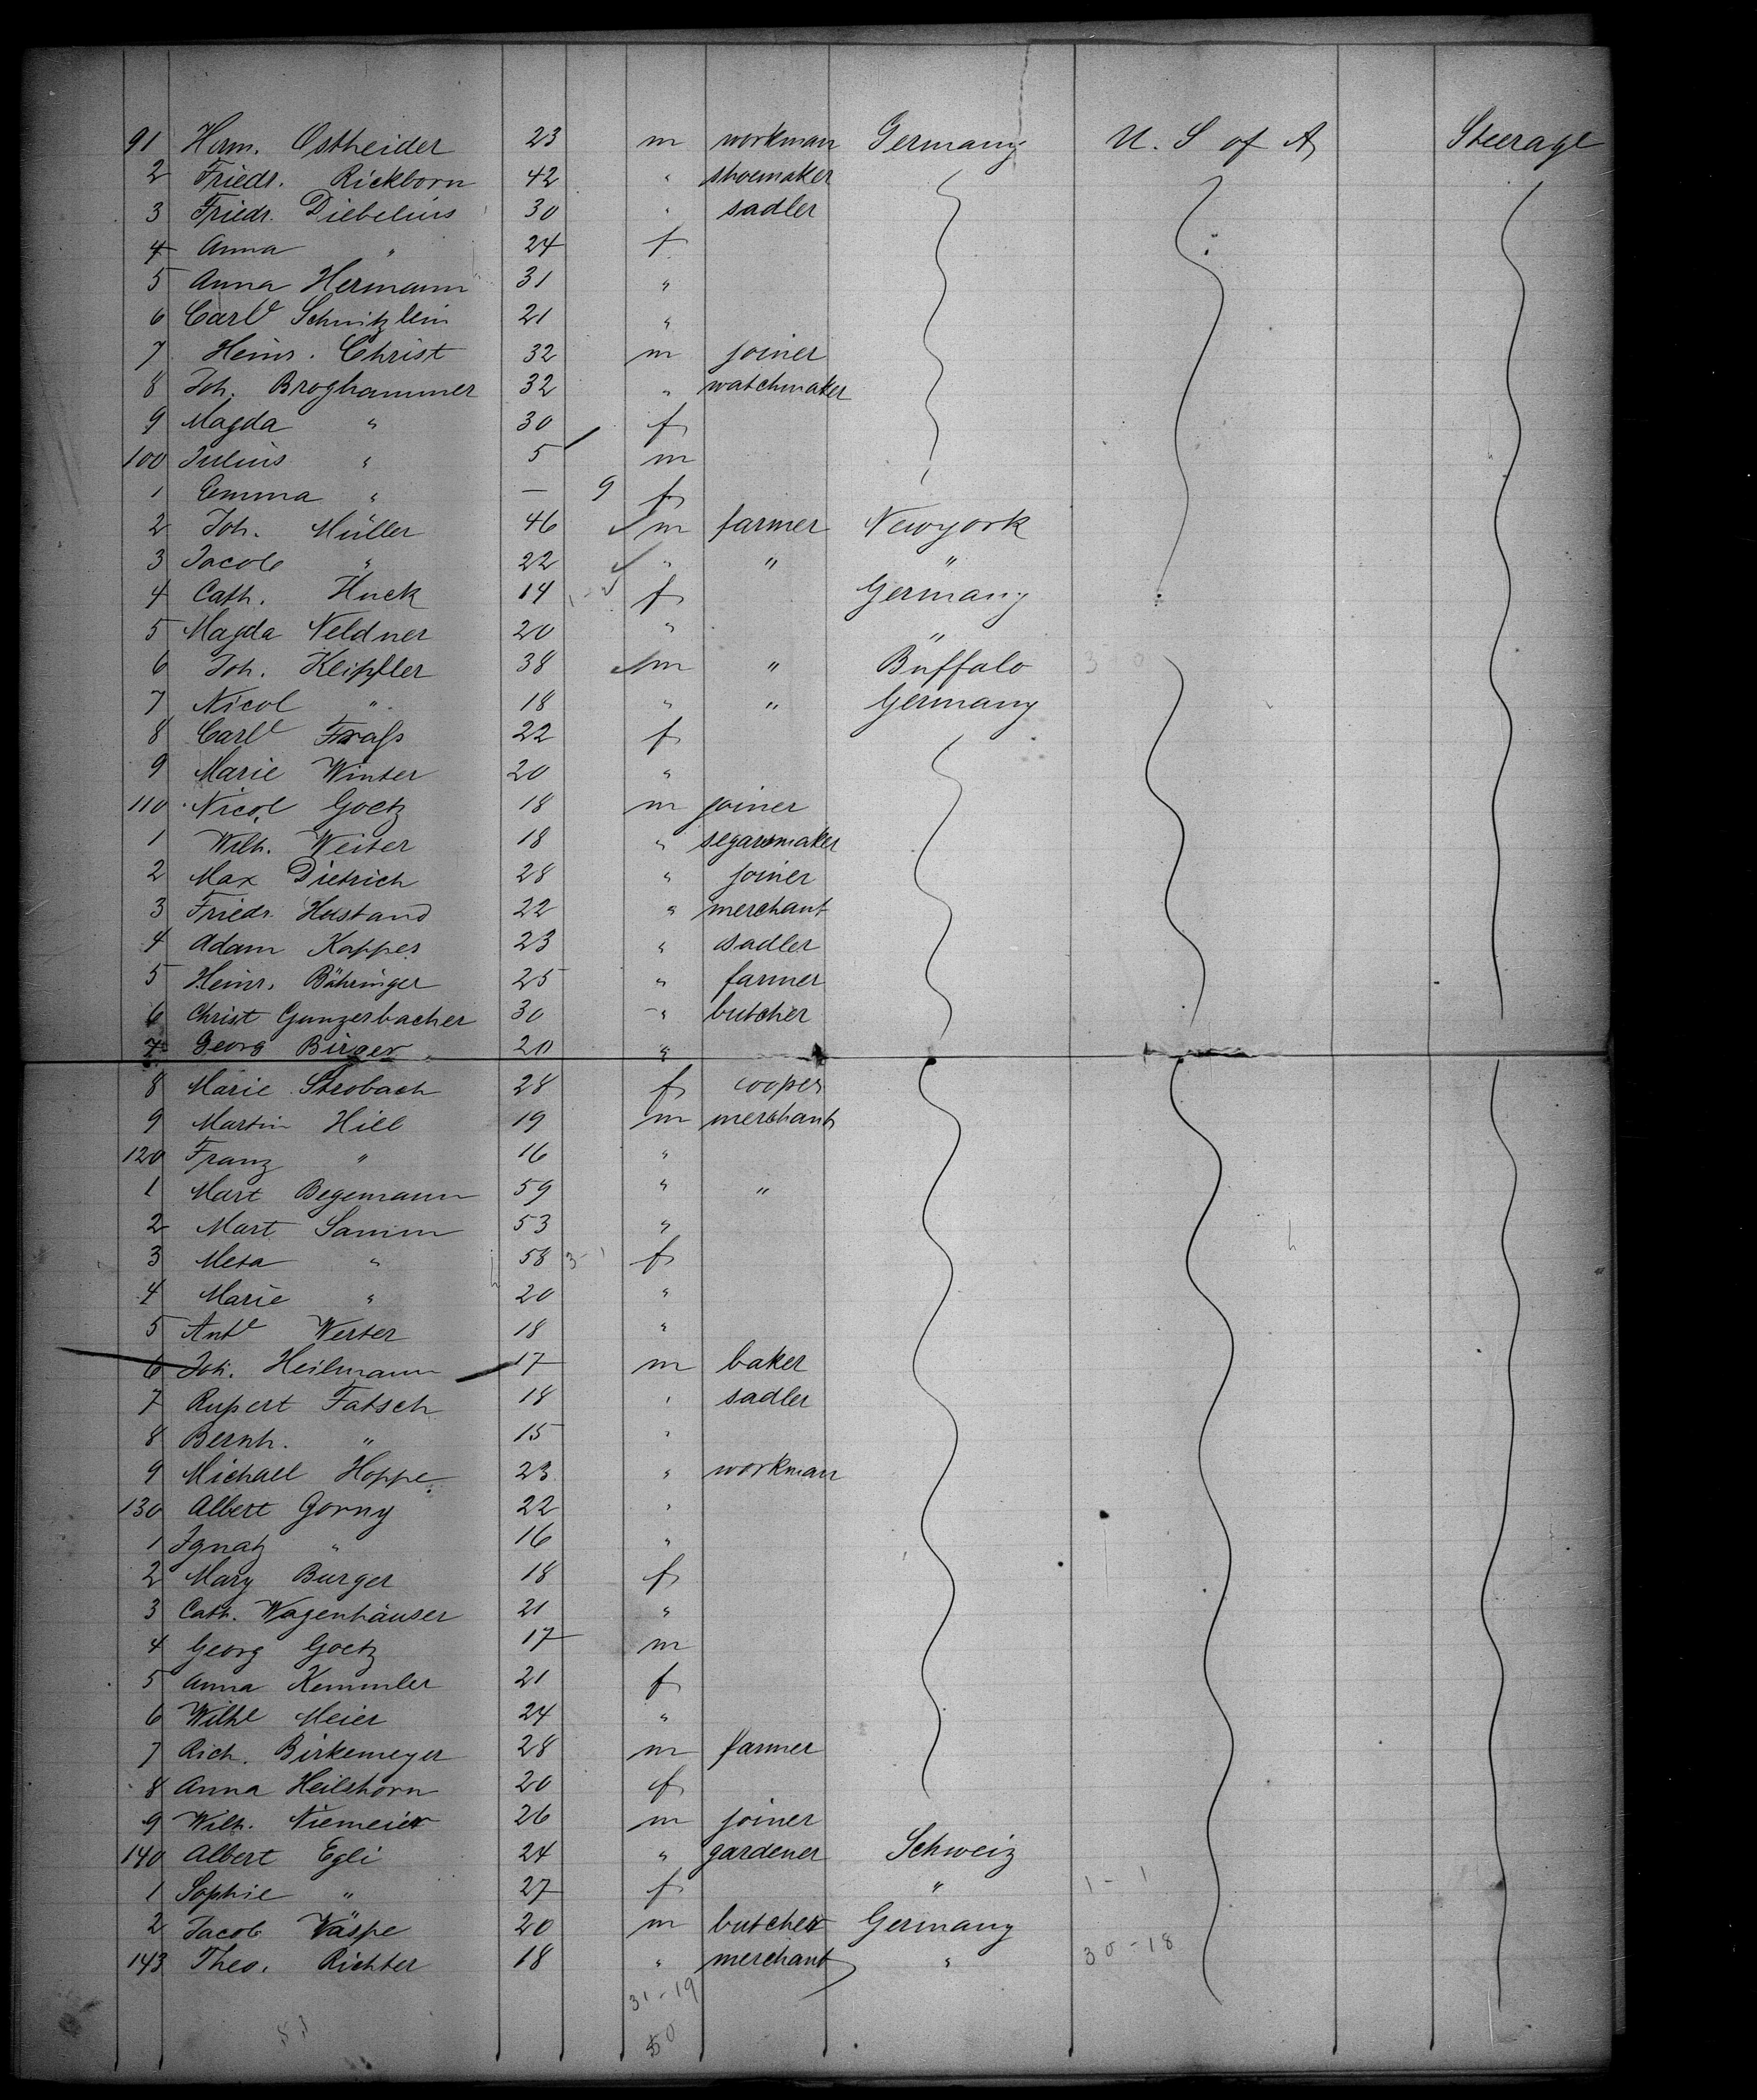 91 Herm. Ostheider 23 m workman Germany U. S of A Steerage
2 Friedr. Rickborn 42 " shoemaker
3 Friedr. Diebelius 30 " sadler
4 Anna " 24 f
5 Anna Hermann 31 "
6 Carl Schnitzlein 21 "
7 Heinr. Christ 32 m joiner
8 Joh. Broghammer 32 " watchmaker
9 Magda " 30 f
100 Julius " 5 m
1 Emma " — 9 f
2 Joh. Müller 46 m farmer Newyork
3 Jacob " 22 " " "
4 Cath. Huck 14 f Germany
5 Magda Neldner 20 " "
6 Joh. Keipfler 38 m " Buffalo
7 Nicol " 18 " " Germany
8 Carl Frass 22 f
9 Marie Winter 20 "
110 Nicol Goetz 18 m joiner
1 Wilh. Weiter 18 " segarsmaker
2 Max Dietrich 28 " joiner
3 Friedr. Hustand 22 " merchant
4 Adam Kappes 23 " sadler
5 Heinr. Bähringer 25 " farmer
6 Christ Gunzerbacher 30 " butcher
7 Georg Birger 20 "
8 Marie Strobach 28 f cooper
9 Martin Hill 19 m merchant
120 Franz " 16 "
1 Mart Begemann 59 " "
2 Mart Samm 53 "
3 Meta " 58 f
4 Marie " 20 "
5 Ant Werter 18 "
6 Joh. Heilmann 17 m baker
7 Rupert Fatsch 18 " sadler
8 Bernh. " 15 "
9 Michael Hoppe 23 " workman
130 Albert Gorny 22 "
1 Ignatz " 16 "
2 Mary Burger 18 f
3 Cath. Wagenhäuser 21 "
4 Georg Goetz 17 m
5 Anna Kemmler 21 f
6 Wilhe Meier 24 "
7 Rich. Birkemeyer 28 m farmer
8 Anna Heilshorn 20 f
9 Wilh. Niemeier 26 m joiner
140 Albert Egli 24 " gardener Schweiz
1 Sophie " 27 f " 1 - 1
2 Jacob Väspe 20 m butcher Germany
143 Theo. Richter 18 " merchant " 30 - 18
31 - 19
53 50